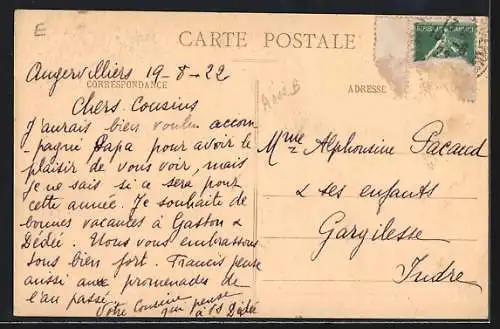 E
CARTE POSTALE
Angervilliers 19-8-22
CORRESPONDANCE
ADRESSE
Chers Cousins
J'aurais bien voulu accom-
pagné Papa pour avoir le
plaisir de vous voir, mais
je ne sais si ce sera pour
cette année. Je souhaite de
bonnes vacances à Gaston &
Dédée. Nous vous embrassons
tous bien fort. Francis pense
aussi aux promenades de
l'an passé.
Votre Cousine
qui pense
à sa Dédée
Mme Alphonsine Pacaud
& ses enfants
Gargilesse
Indre